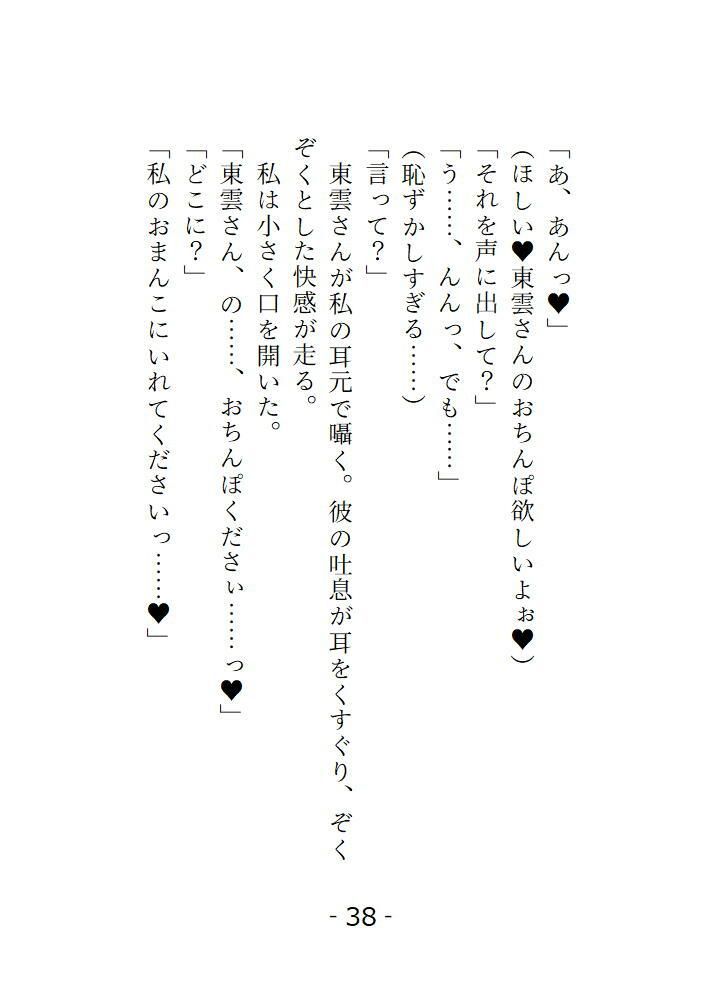 「あ、あんっ♥」
(ほしい♥東雲さんのおちんぽ欲しいよぉ♥)
「それを声に出して？」
「う……、んんっ、でも……」
(恥ずかしすぎる……)
「言って？」
　東雲さんが私の耳元で囁く。彼の吐息が耳をくすぐり、ぞく
ぞくとした快感が走る。
　私は小さく口を開いた。
「東雲さん、の……、おちんぽくださぃ……っ♥」
「どこに？」
「私のおまんこにいれてくださいっ……♥」
- 38 -